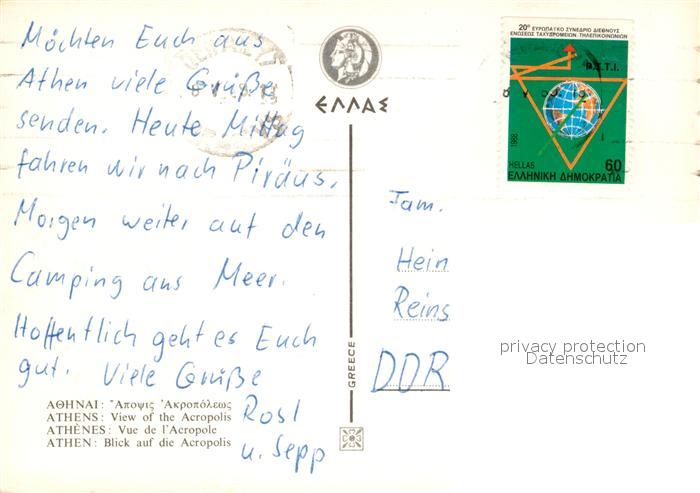 Möchten Euch aus
Athen viele Grüße
senden. Heute Mittag
fahren wir nach Piräus.
Morgen weiter auf den
Camping ans Meer.
Hoffentlich geht es Euch
gut. Viele Grüße
Rosl
u. Sepp
ΑΘΗΝΑΙ: Ἄποψις Ἀκροπόλεως
ATHENS: View of the Acropolis
ATHÈNES: Vue de l'Acropole
ATHEN: Blick auf die Acropolis
ΕΛΛΑΣ
GREECE
20º ΕΥΡΩΠΑΪΚΟ ΣΥΝΕΔΡΙΟ ΔΙΕΘΝΟΥΣ
ΕΝΩΣΕΩΣ ΤΑΧΥΔΡΟΜΕΙΩΝ ΤΗΛΕΠΙΚΟΙΝΩΝΙΩΝ
P.T.T.I.
1988
HELLAS 60
ΕΛΛΗΝΙΚΗ ΔΗΜΟΚΡΑΤΙΑ
Fam.
Hein
Reins
DDR
privacy protection
Datenschutz